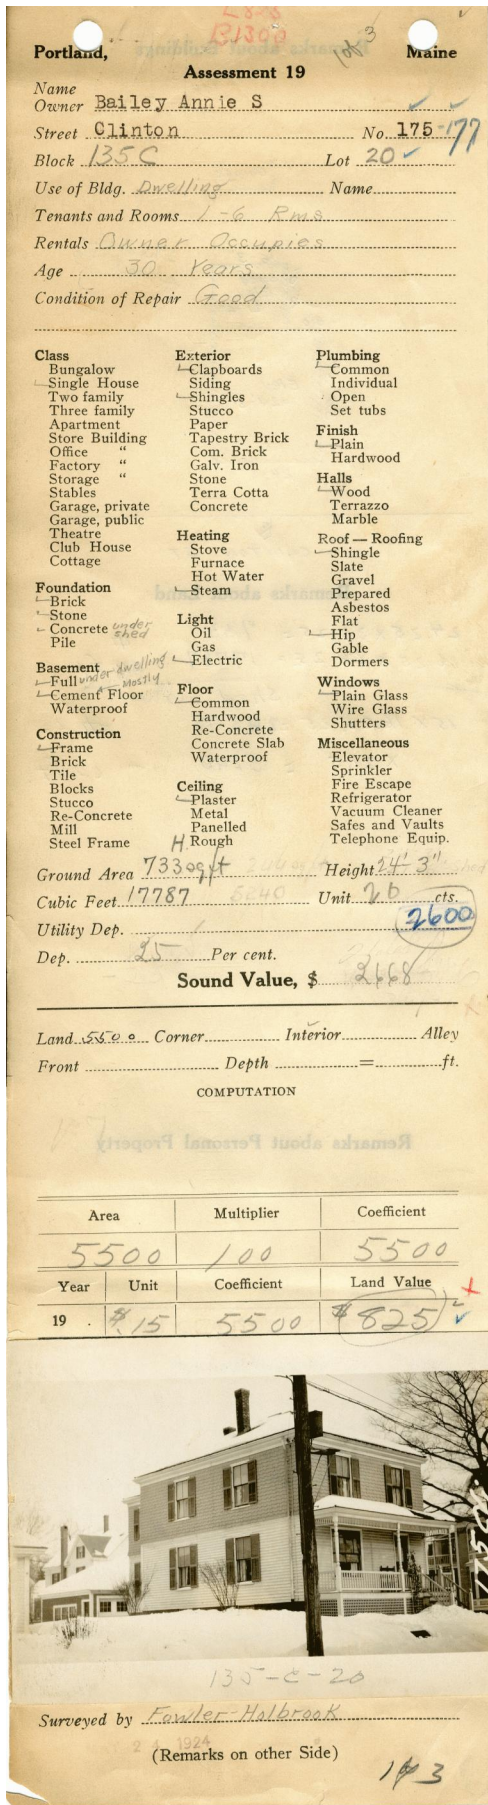 L825
B1300
1 of 3
Portland, Maine
Assessment 19
Name
Owner Bailey Annie S
Street Clinton No. 175-177
Block 135C Lot 20
Use of Bldg. Dwelling Name
Tenants and Rooms 1-6 Rms
Rentals Owner Occupies
Age 30 Years
Condition of Repair Good
Class
Bungalow
Single House
Two family
Three family
Apartment
Store Building
Office "
Factory "
Storage "
Stables
Garage, private
Garage, public
Theatre
Club House
Cottage
Foundation
Brick
Stone
Concrete under shed
Pile
Basement
Full under dwelling
Cement Floor Mostly
Waterproof
Construction
Frame
Brick
Tile
Blocks
Stucco
Re-Concrete
Mill
Steel Frame
Exterior
Clapboards
Siding
Shingles
Stucco
Paper
Tapestry Brick
Com. Brick
Galv. Iron
Stone
Terra Cotta
Concrete
Heating
Stove
Furnace
Hot Water
Steam
Light
Oil
Gas
Electric
Floor
Common
Hardwood
Re-Concrete
Concrete Slab
Waterproof
Ceiling
Plaster
Metal
Panelled
H. Rough
Plumbing
Common
Individual
Open
Set tubs
Finish
Plain
Hardwood
Halls
Wood
Terrazzo
Marble
Roof — Roofing
Shingle
Slate
Gravel
Prepared
Asbestos
Flat
Hip
Gable
Dermers
Windows
Plain Glass
Wire Glass
Shutters
Miscellaneous
Elevator
Sprinkler
Fire Escape
Refrigerator
Vacuum Cleaner
Safes and Vaults
Telephone Equip.
Ground Area 733 sq ft Height 24' 3"
Cubic Feet 17787 Unit 26 cts.
2600
Utility Dep.
Dep. 25 Per cent.
Sound Value, $ 2668
Land 5500 Corner Interior Alley
Front Depth = ft.
COMPUTATION
Remarks about Personal Property
Area Multiplier Coefficient
5500 100 5500
Year Unit Coefficient Land Value
19 . $.15 5500 $825
135-C-20
Surveyed by Fowler-Holbrook
1924
(Remarks on other Side)